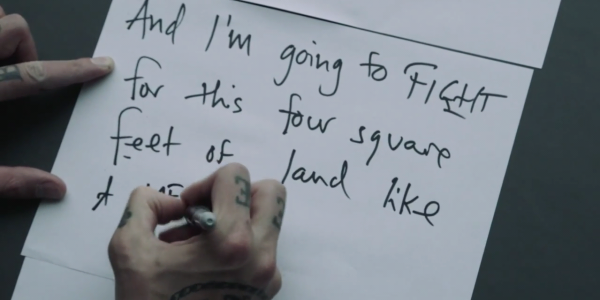 And I'm going to FIGHT
for this four square
feet of land like
A